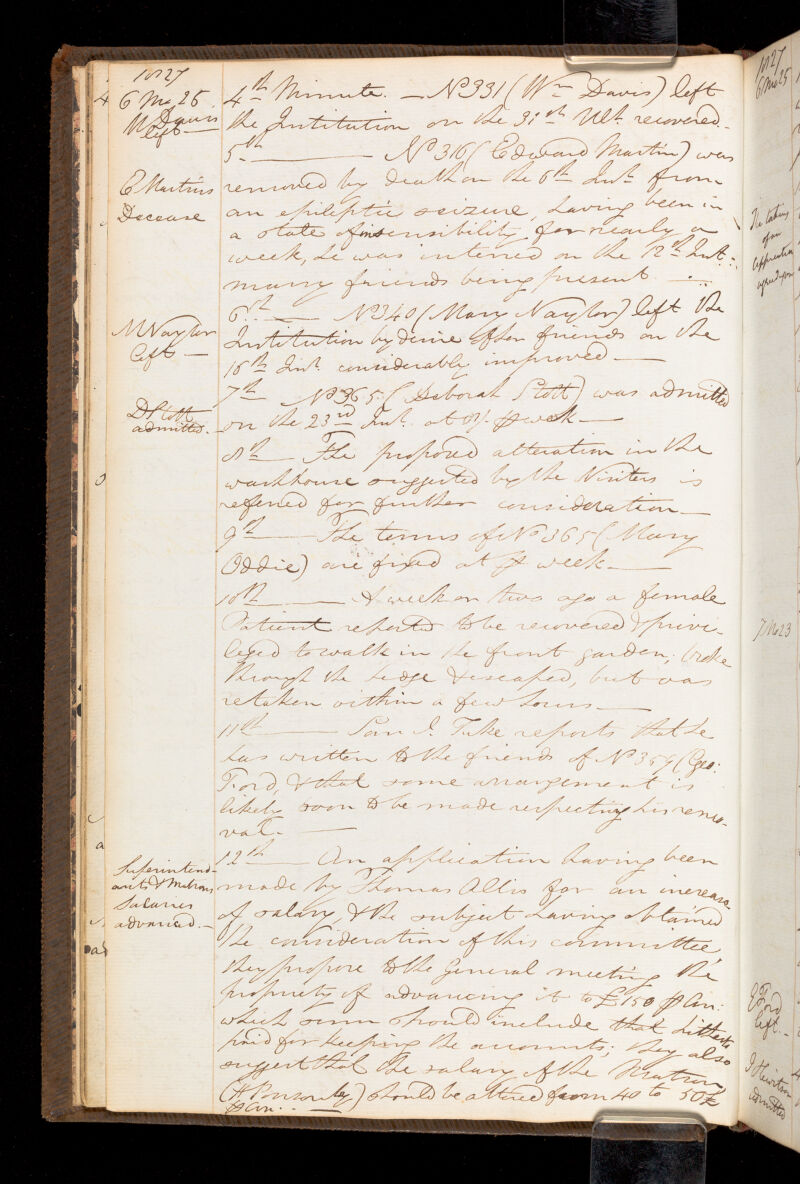 1827
6 Mo 25
4th Minute. — No 331 (Wm Davis) left
W Davis
left —
the Institution on the 31st Ult. recovered.
5th — No 316 (Edward Martin) was
E Martins
Decease
removed by death on the 6th Inst. from
an epileptic seizure, having been in
a state of insensibility for nearly a
week, he was interred on the 12th Inst.
many friends being present —
6th — No 340 (Mary Naylor) left the
M Naylor
left —
Institution by desire of her friends on the
16th Inst. considerably improved —
7th No 365 (Deborah Stott) was admitted
D Stott
admitted. —
on the 23rd Inst. at 8/. p week —
8th — The proposed alteration in the
warkhouse suggested by the Visiters is
referred for further consideration —
9th — The terms of No 365 (Mary
Oddie) are fixed at p week —
10th — A week or two ago a female
Patient reported to be recovered & privi-
leged to walk in the front garden, broke
through the hedge & escaped, but was
retaken within a few hours —
11th — Saml. Tuke reports that he
has written to the friends of No 359 (Geo:
Ford, & that some arrangement is
likely soon to be made respecting his remo-
val. —
12th — An application having been
Superintend-
ants & Matrons
Salaries
advanced. —
made by Thomas Allis for an increase
of salary, & the subject having obtained
the consideration of this committee
they propose to the General meeting the
propriety of advancing it to £150 p An:
which sum should include that hitherto
paid for keeping the accounts; they also
suggest that the salary of the Matron
(H Ponsonby) should be altered from 40 to 50£
p An. —
1827
6 Mo 25
The taking
of an
Apprentice
agreed upon
7 Mo 23
G Ford
left. —
admitted